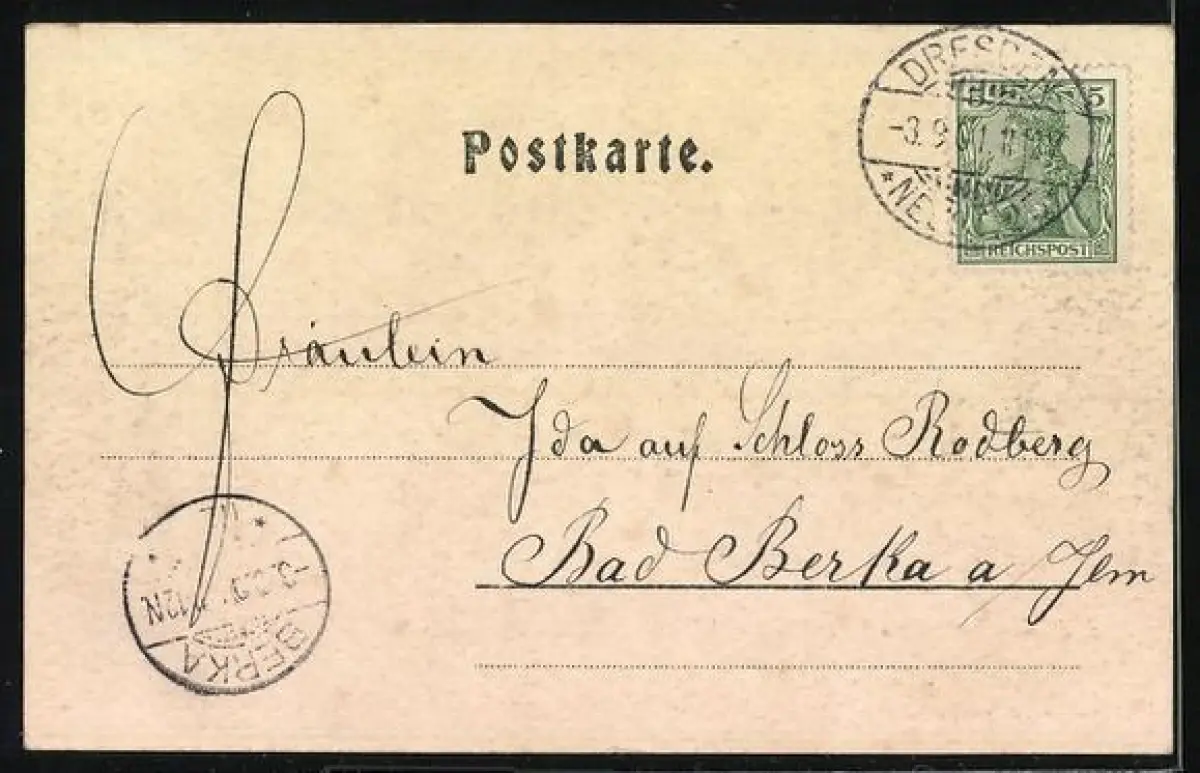 Postkarte.
DRESDEN
-3.9
5
REICHSPOST
Fräulein
Ida auf Schloss Rodberg
Bad Berka a Ilm
12N
BERKA